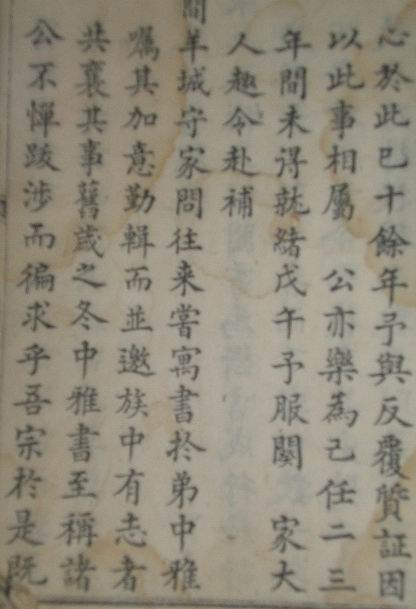 心於此已十餘年予與反覆質証因
以此事相屬 公亦樂為己任二三
年間未得就緒戊午予服闋 家大
人趣令赴補
間羊城守家問往来嘗寓書於弟中雅
囑其加意勤輯而並邀族中有志者
共襄其事舊歲之冬中雅書至稱諸
公不憚跋涉而徧求乎吾宗於是既